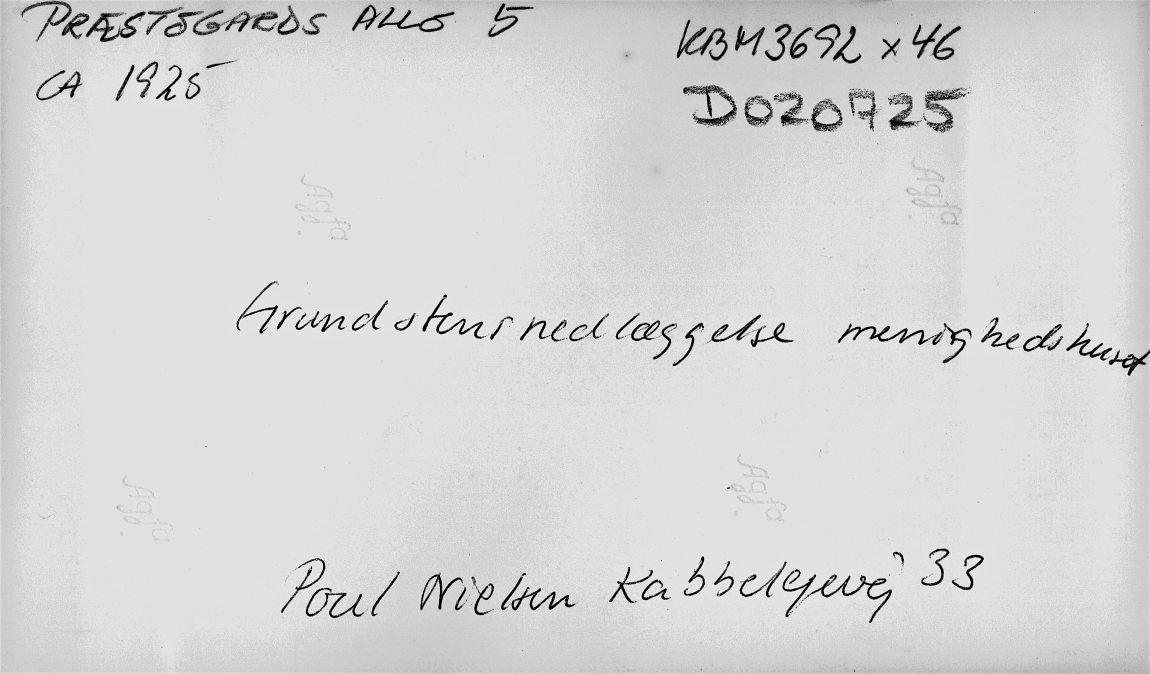 PRÆSTEGARDS ALLE 5
CA 1925
KBM3692 x 46
D020725
Agfa
Agfa
Grundstensnedlæggelse menighedshuset
Agfa
Agfa
Poul Nielsen Kabbelejevej 33